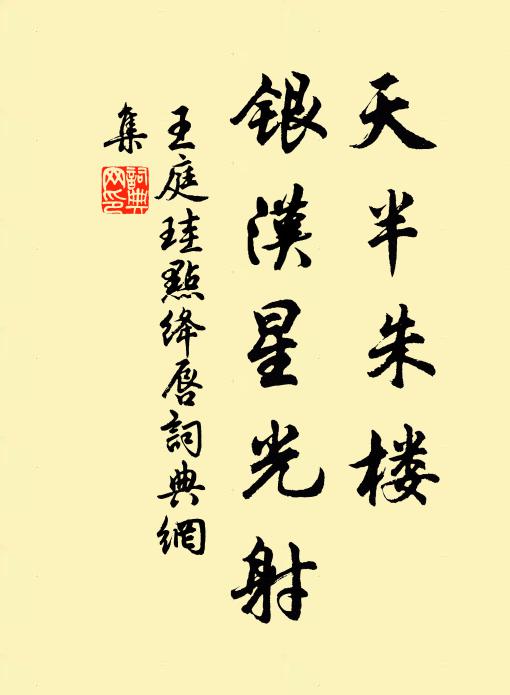 天半朱楼
银汉星光射
王庭珪點绛唇詞典網
集
詞典网印